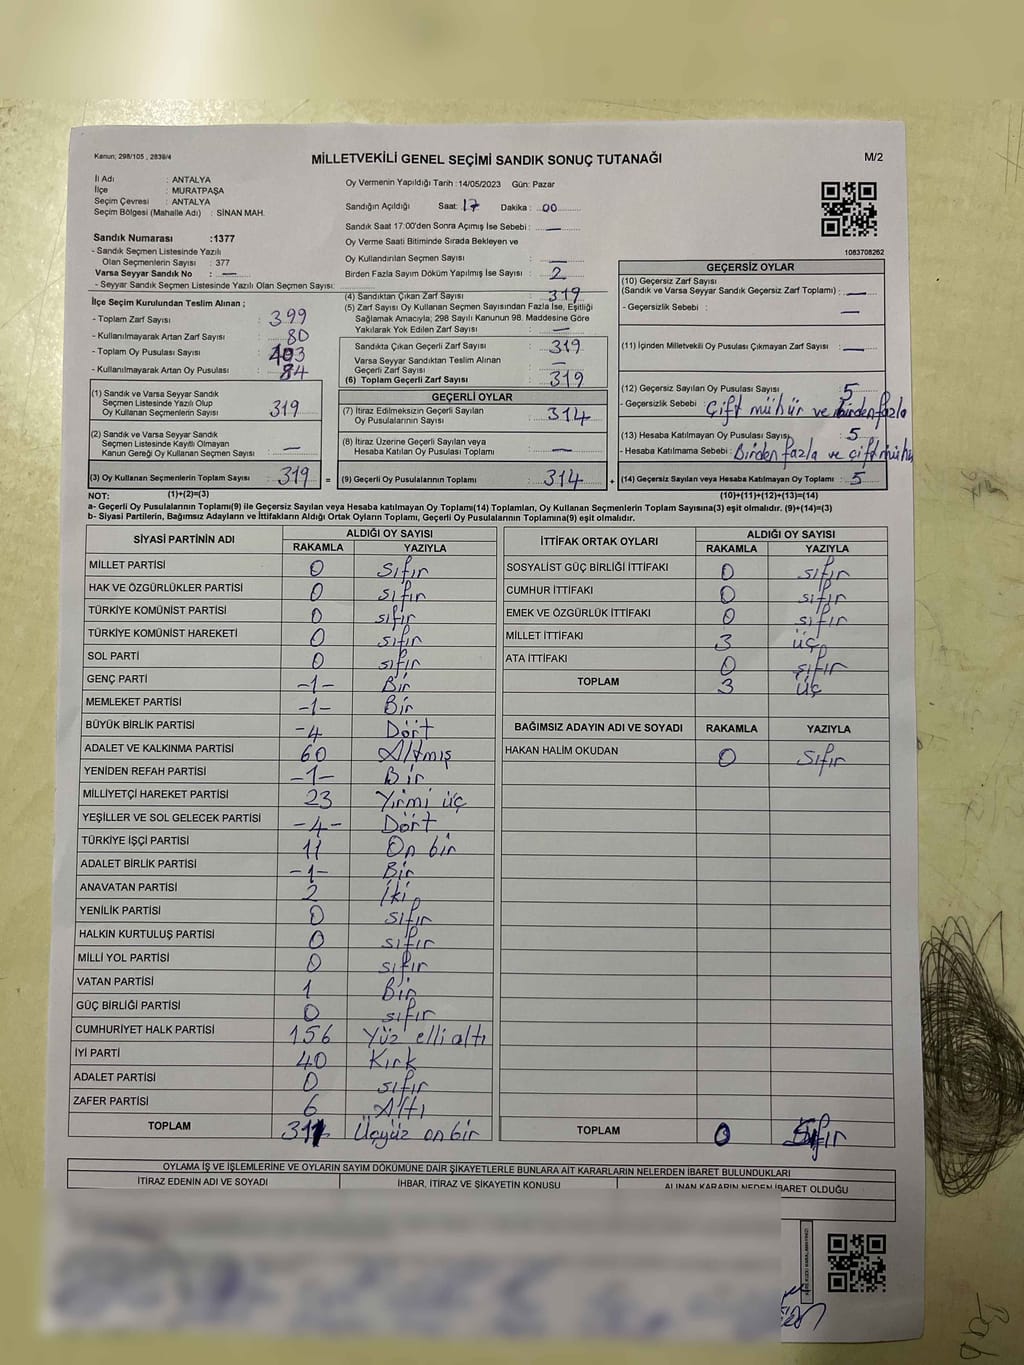 Kanun; 298/105 , 2839/4
MİLLETVEKİLİ GENEL SEÇİMİ SANDIK SONUÇ TUTANAĞI
M/2
İl Adı : ANTALYA
İlçe : MURATPAŞA
Seçim Çevresi : ANTALYA
Seçim Bölgesi (Mahalle Adı) : SİNAN MAH.
Sandık Numarası :1377
- Sandık Seçmen Listesinde Yazılı
Olan Seçmenlerin Sayısı : 377
Varsa Seyyar Sandık No : —
- Seyyar Sandık Seçmen Listesinde Yazılı Olan Seçmen Sayısı:
Oy Vermenin Yapıldığı Tarih :14/05/2023 Gün: Pazar
Sandığın Açıldığı Saat: 17 Dakika : 00
Sandık Saat 17:00'den Sonra Açımış İse Sebebi : —
Oy Verme Saati Bitiminde Sırada Bekleyen ve
Oy Kullandırılan Seçmen Sayısı : —
Birden Fazla Sayım Döküm Yapılmış İse Sayısı : 2
1083708262
İlçe Seçim Kurulundan Teslim Alınan ;
- Toplam Zarf Sayısı : 399
- Kullanılmayarak Artan Zarf Sayısı : 80
- Toplam Oy Pusulası Sayısı : 403
- Kullanılmayarak Artan Oy Pusulası : 84
(1) Sandık ve Varsa Seyyar Sandık
Seçmen Listesinde Yazılı Olup
Oy Kullanan Seçmenlerin Sayısı : 319
(2) Sandık ve Varsa Seyyar Sandık
Seçmen Listesinde Kayıtlı Olmayan
Kanun Gereği Oy Kullanan Seçmen Sayısı : —
(3) Oy Kullanan Seçmenlerin Toplam Sayısı : 319 =
(4) Sandıktan Çıkan Zarf Sayısı : 319
(5) Zarf Sayısı Oy Kullanan Seçmen Sayısından Fazla İse, Eşitliği
Sağlamak Amacıyla; 298 Sayılı Kanunun 98. Maddesine Göre
Yakılarak Yok Edilen Zarf Sayısı : —
Sandıkta Çıkan Geçerli Zarf Sayısı : 319
Varsa Seyyar Sandıktan Teslim Alınan
Geçerli Zarf Sayısı : —
(6) Toplam Geçerli Zarf Sayısı : 319
GEÇERLİ OYLAR
(7) İtiraz Edilmeksizin Geçerli Sayılan
Oy Pusulalarının Sayısı : 314
(8) İtiraz Üzerine Geçerli Sayılan veya
Hesaba Katılan Oy Pusulaları Toplamı : —
(9) Geçerli Oy Pusulalarının Toplamı : 314 +
GEÇERSİZ OYLAR
(10) Geçersiz Zarf Sayısı
(Sandık ve Varsa Seyyar Sandık Geçersiz Zarf Toplamı) : —
- Geçersizlik Sebebi : —
(11) İçinden Milletvekili Oy Pusulası Çıkmayan Zarf Sayısı : —
(12) Geçersiz Sayılan Oy Pusulası Sayısı : 5
- Geçersizlik Sebebi : Çift mühür ve birden fazla
(13) Hesaba Katılmayan Oy Pusulası Sayısı : 5
- Hesaba Katılmama Sebebi : Birden fazla ve çift mühür
(14) Geçersiz Sayılan veya Hesaba Katılmayan Oy Toplamı : 5
NOT: (1)+(2)=(3)
(10)+(11)+(12)+(13)=(14)
a- Geçerli Oy Pusulalarının Toplamı(9) ile Geçersiz Sayılan veya Hesaba Katılmayan Oy Toplamı(14) Toplamları, Oy Kullanan Seçmenlerin Toplam Sayısına(3) eşit olmalıdır. (9)+(14)=(3)
b- Siyasi Partilerin, Bağımsız Adayların ve İttifakların Aldığı Ortak Oyların Toplamı, Geçerli Oy Pusulalarının Toplamına(9) eşit olmalıdır.
SİYASİ PARTİNİN ADI ALDIĞI OY SAYISI
RAKAMLA YAZIYLA
MİLLET PARTİSİ 0 sıfır
HAK VE ÖZGÜRLÜKLER PARTİSİ 0 sıfır
TÜRKİYE KOMÜNİST PARTİSİ 0 sıfır
TÜRKİYE KOMÜNİST HAREKETİ 0 sıfır
SOL PARTİ 0 sıfır
GENÇ PARTİ -1- Bir
MEMLEKET PARTİSİ -1- Bir
BÜYÜK BİRLİK PARTİSİ -4 Dört
ADALET VE KALKINMA PARTİSİ 60 Altmış
YENİDEN REFAH PARTİSİ -1- Bir
MİLLİYETÇİ HAREKET PARTİSİ 23 Yirmi üç
YEŞİLLER VE SOL GELECEK PARTİSİ -4- Dört
TÜRKİYE İŞÇİ PARTİSİ 11 On bir
ADALET BİRLİK PARTİSİ -1- Bir
ANAVATAN PARTİSİ 2 İki
YENİLİK PARTİSİ 0 sıfır
HALKIN KURTULUŞ PARTİSİ 0 sıfır
MİLLİ YOL PARTİSİ 0 sıfır
VATAN PARTİSİ 1 Bir
GÜÇ BİRLİĞİ PARTİSİ 0 sıfır
CUMHURİYET HALK PARTİSİ 156 Yüz elli altı
İYİ PARTİ 40 Kırk
ADALET PARTİSİ 0 sıfır
ZAFER PARTİSİ 6 Altı
TOPLAM 311 Üçyüz on bir
İTTİFAK ORTAK OYLARI ALDIĞI OY SAYISI
RAKAMLA YAZIYLA
SOSYALİST GÜÇ BİRLİĞİ İTTİFAKI 0 sıfır
CUMHUR İTTİFAKI 0 sıfır
EMEK VE ÖZGÜRLÜK İTTİFAKI 0 sıfır
MİLLET İTTİFAKI 3 üç
ATA İTTİFAKI 0 sıfır
TOPLAM 3 üç
BAĞIMSIZ ADAYIN ADI VE SOYADI RAKAMLA YAZIYLA
HAKAN HALİM OKUDAN 0 sıfır
TOPLAM 0 Sıfır
OYLAMA İŞ VE İŞLEMLERİNE VE OYLARIN SAYIM DÖKÜMÜNE DAİR ŞİKAYETLERLE BUNLARA AİT KARARLARIN NELERDEN İBARET BULUNDUKLARI
İTİRAZ EDENİN ADI VE SOYADI İHBAR, İTİRAZ VE ŞİKAYETİN KONUSU ALINAN KARARIN NEDEN İBARET OLDUĞU